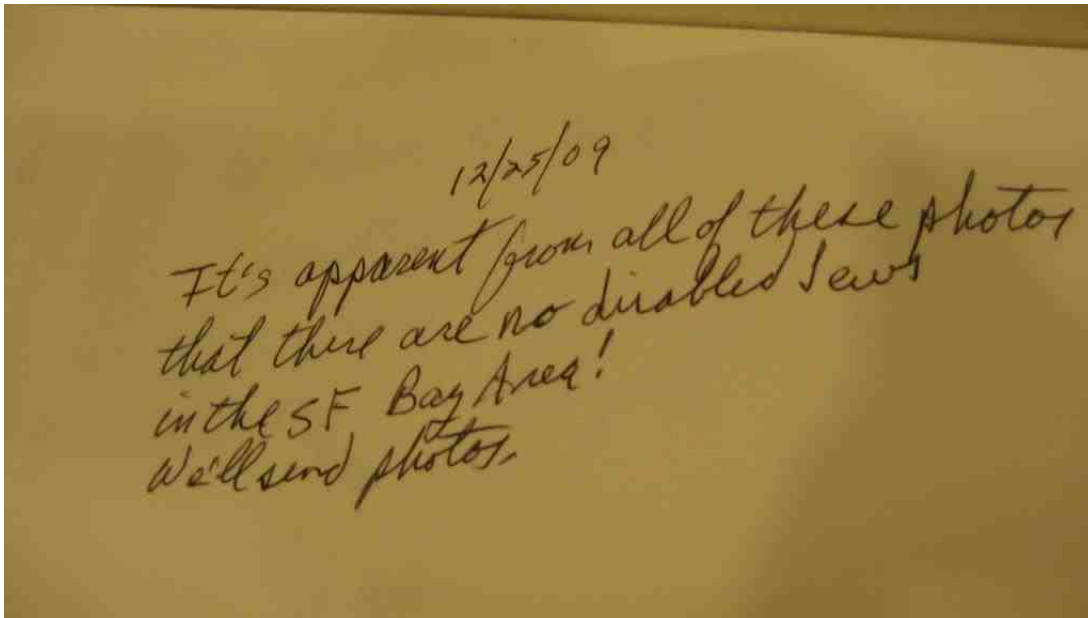 12/25/09
It's apparent from all of these photos
that there are no disabled Jews
in the SF Bay Area!
We'll send photos.